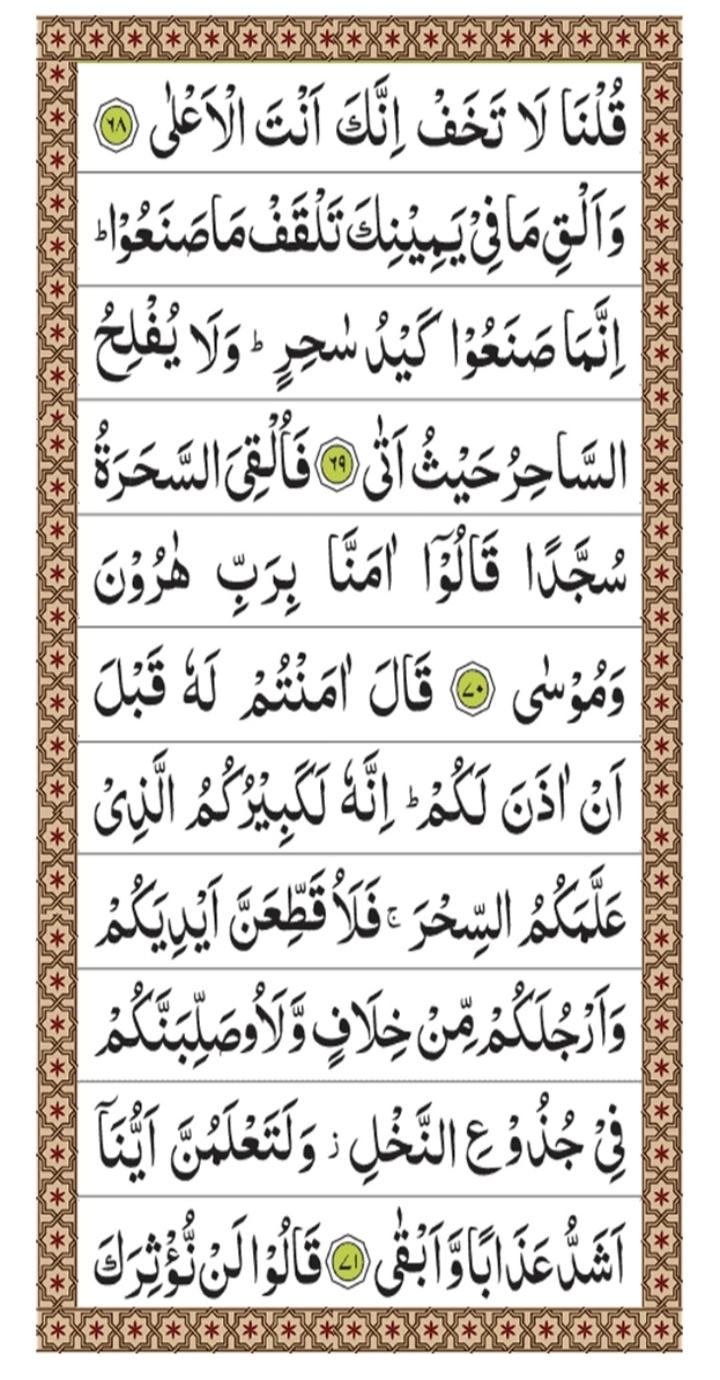 قُلْنَا لَا تَخَفْ اِنَّكَ اَنْتَ الْاَعْلٰى ۝٦٨
وَاَلْقِ مَا فِيْ يَمِيْنِكَ تَلْقَفْ مَا صَنَعُوْا ؕ
اِنَّمَا صَنَعُوْا كَيْدُ سٰحِرٍ ؕ وَلَا يُفْلِحُ
السَّاحِرُ حَيْثُ اَتٰى ۝٦٩ فَاُلْقِيَ السَّحَرَةُ
سُجَّدًا قَالُوْٓا اٰمَنَّا بِرَبِّ هٰرُوْنَ
وَمُوْسٰى ۝٧٠ قَالَ اٰمَنْتُمْ لَهٗ قَبْلَ
اَنْ اٰذَنَ لَكُمْ ؕ اِنَّهٗ لَكَبِيْرُكُمُ الَّذِيْ
عَلَّمَكُمُ السِّحْرَ ۚ فَلَاُقَطِّعَنَّ اَيْدِيَكُمْ
وَاَرْجُلَكُمْ مِّنْ خِلَافٍ وَّلَاُوصَلِّبَنَّكُمْ
فِيْ جُذُوْعِ النَّخْلِ ز وَلَتَعْلَمُنَّ اَيُّنَآ
اَشَدُّ عَذَابًا وَّاَبْقٰى ۝٧١ قَالُوْا لَنْ نُّؤْثِرَكَ